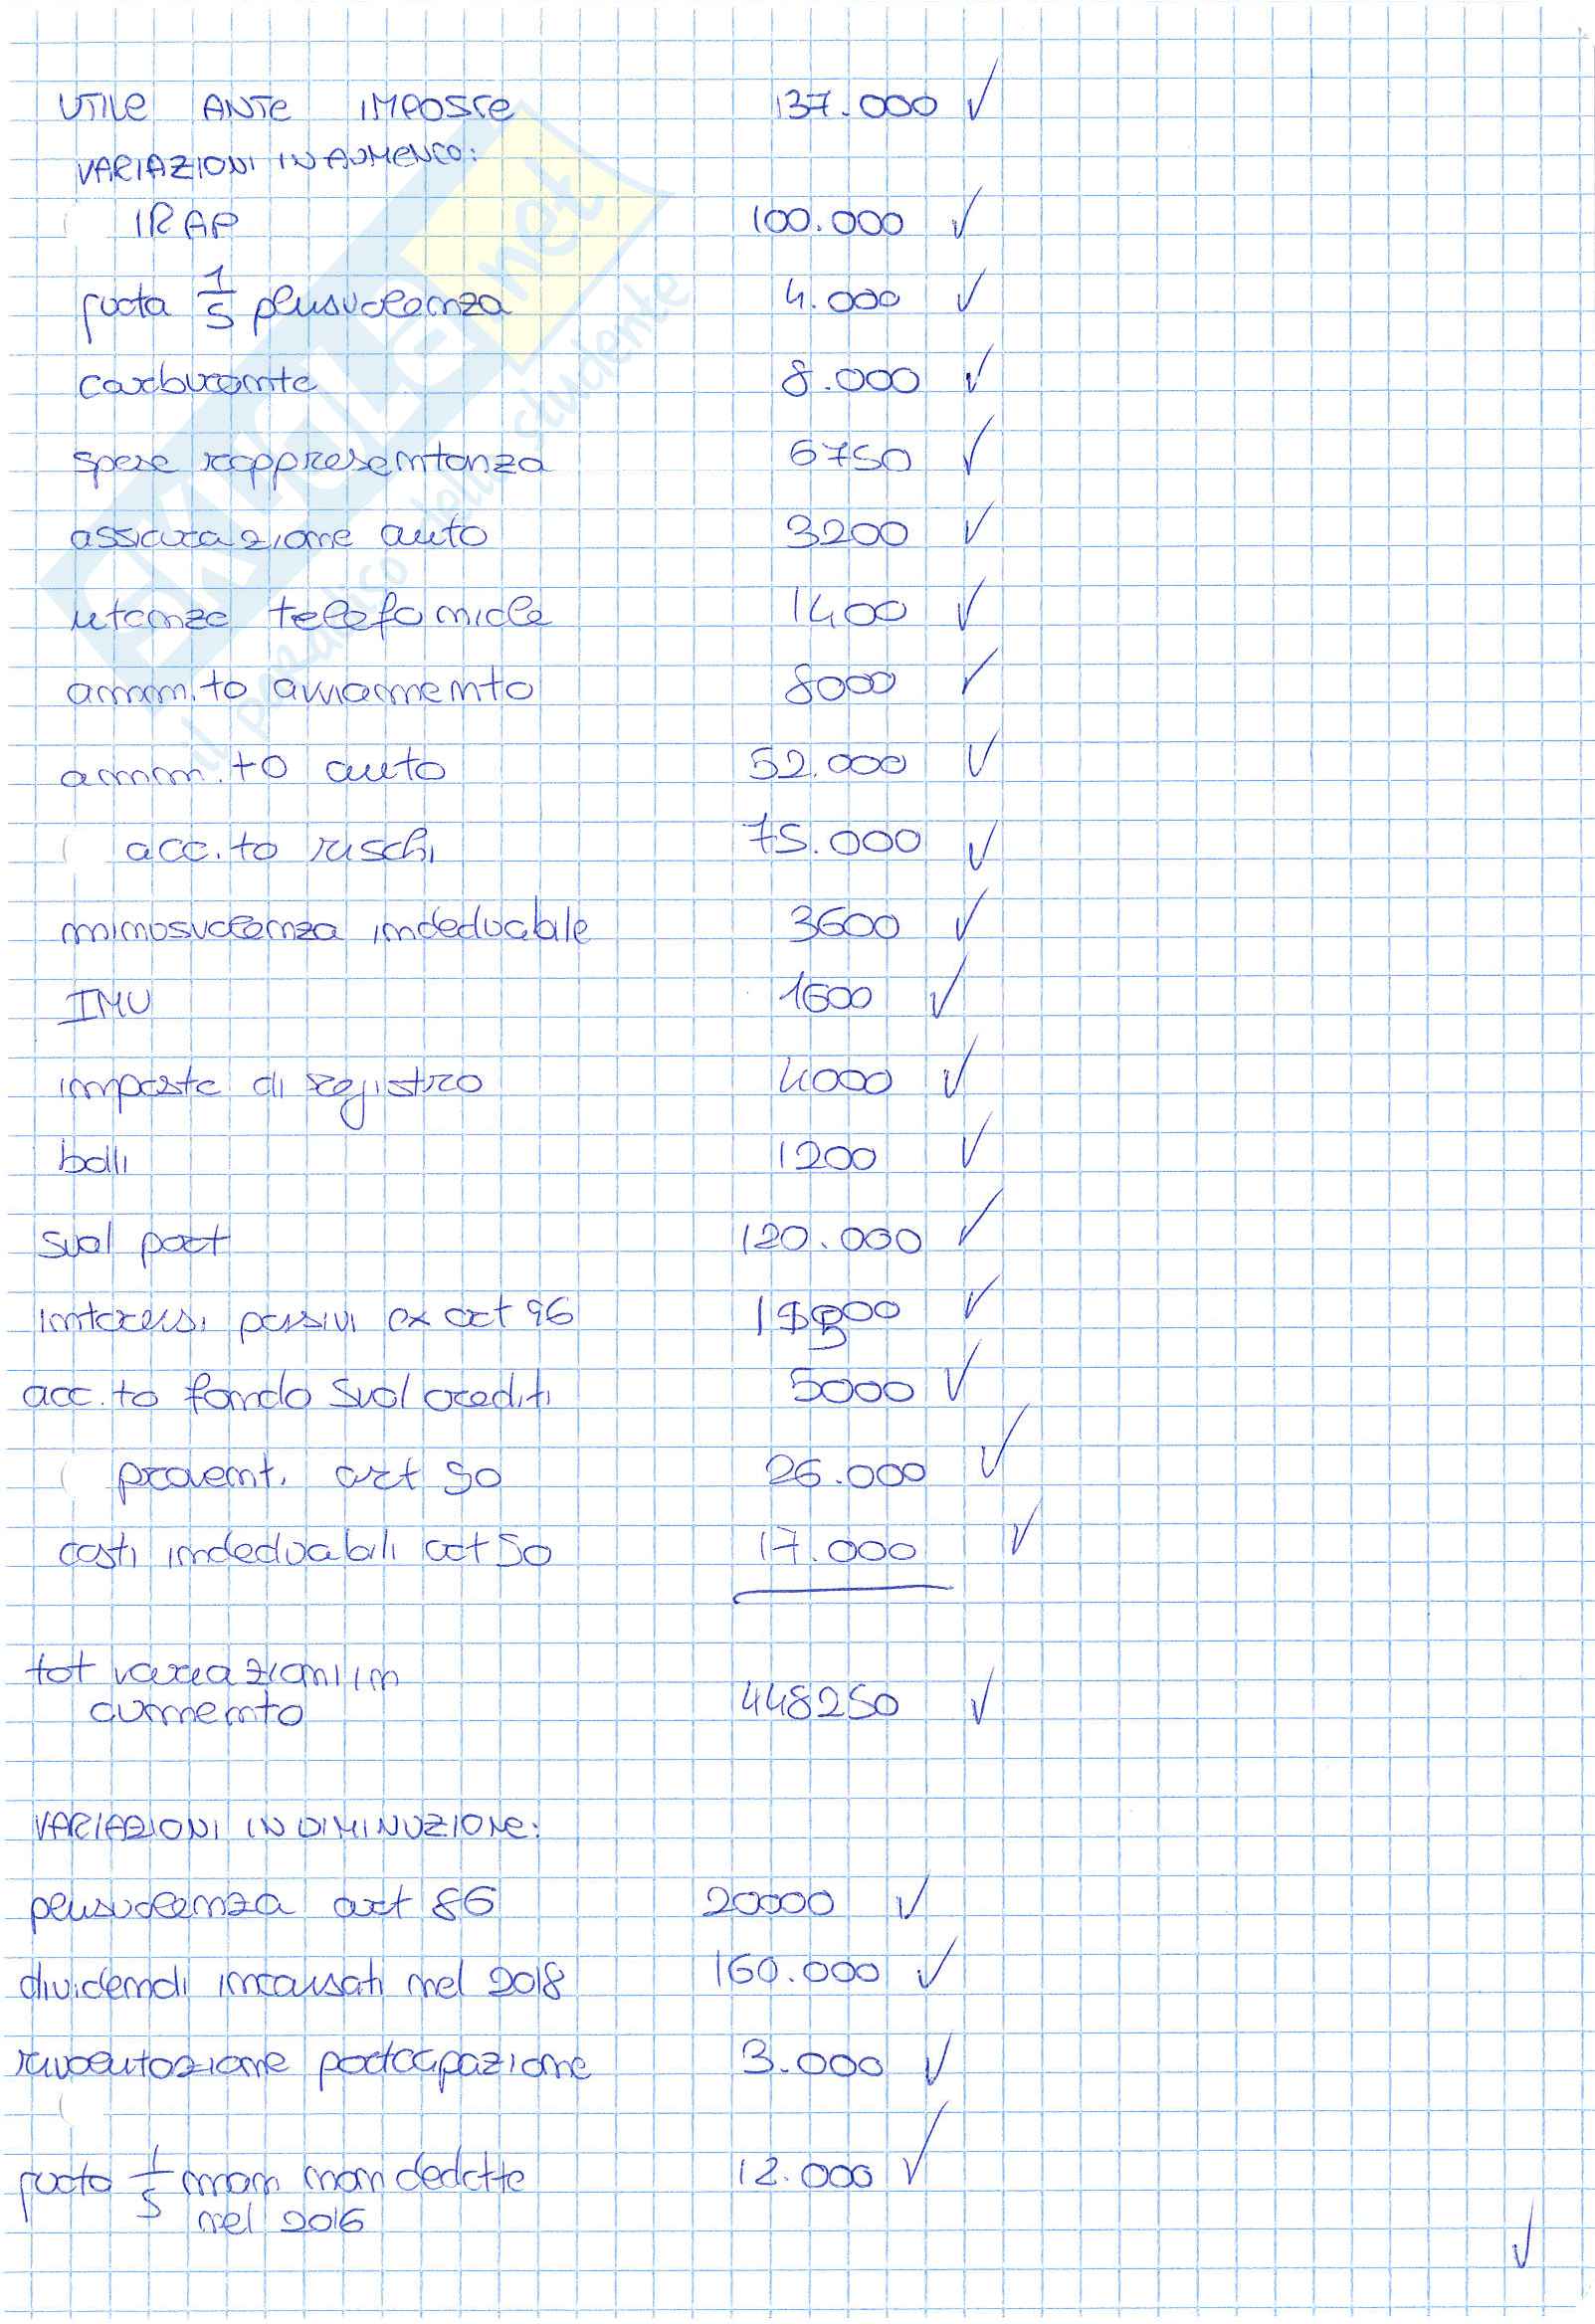 UTILE ANTE IMPOSTE 137.000 ✓
VARIAZIONI IN AUMENTO:
IRAP 100.000 ✓
quota 1/5 plusvalenza 4.000 ✓
carburante 8.000 ✓
spese rappresentanza 6750 ✓
assicurazione auto 3200 ✓
utenze telefoniche 1400 ✓
amm.to avviamento 8000 ✓
amm.to auto 52.000 ✓
acc.to rischi 75.000 ✓
minosvalenza indeducibile 3600 ✓
IMU 1600 ✓
imposte di registro 4000 ✓
bolli 1200 ✓
sval part 120.000 ✓
interessi passivi ex art 96 ✓
acc.to fondo sval crediti 5000 ✓
proventi art 90 26.000 ✓
costi indeducibili art 90 17.000 ✓
tot variazioni in
aumento 448250 ✓
VARIAZIONI IN DIMINUZIONE:
plusvalenza art 86 20000 ✓
dividendi incassati nel 2018 160.000 ✓
rivalutazione partecipazione 3.000 ✓
quota 1/5 man non dedotte 12.000 ✓
nel 2016
✓
SKUOLA.net
il paradiso dello studente